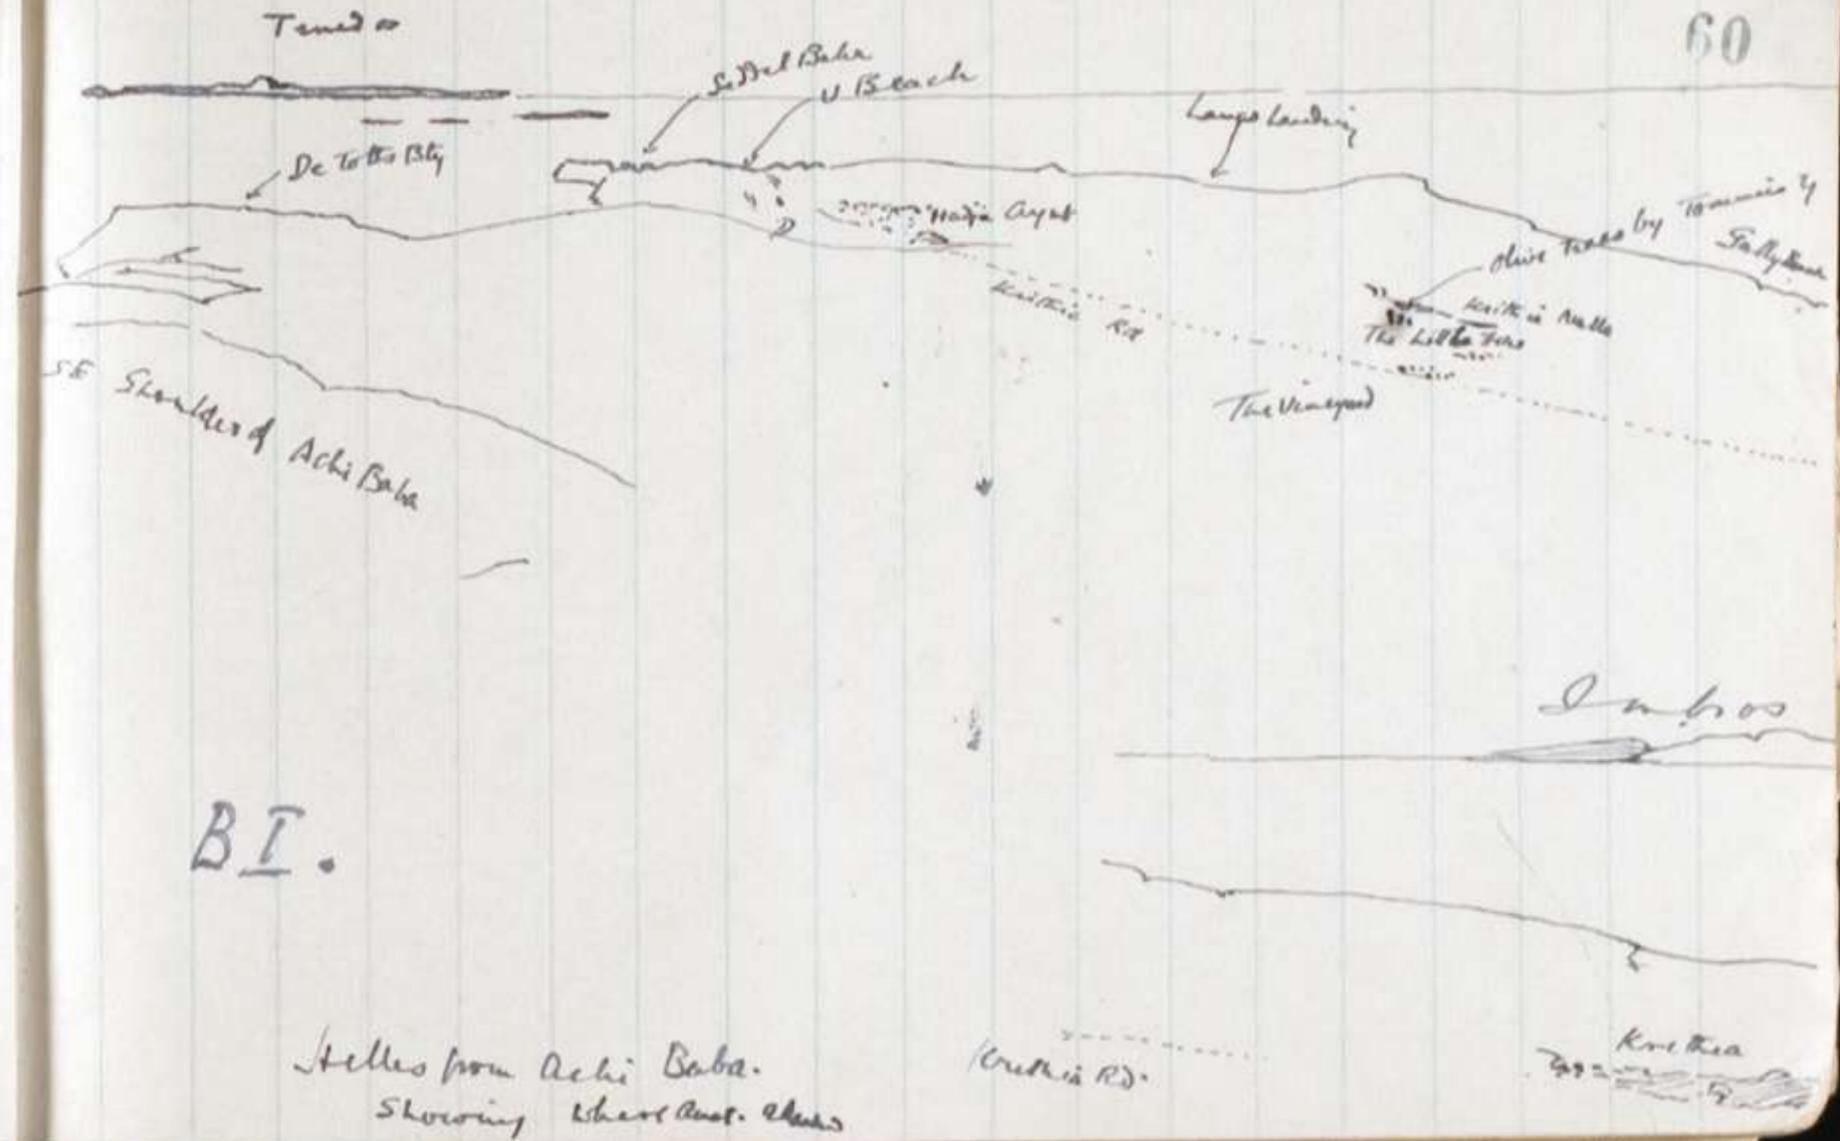 60
Tenedos
Seddel Bahr
V Beach
Lancs Landing
De Totts Bty
Hadji Ayut
olive trees by Tommies
Gully
Krithia Rd
Krithia Nulla
The Little Trees
The Vineyard
SE Shoulder of Achi Baba
Imbros
B I.
Helles from Achi Baba.
Showing where Aust.
Krithia Rd.
Krithia